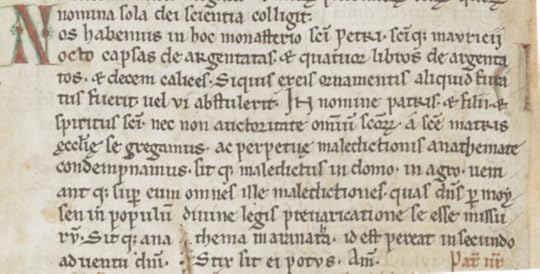 nomina sola dei scientia colligit.
Nos habemus in hoc monasterio sci petri. sciq; mauricii
octo capsas deargentatas. & quatuor libros deargenta
tos. & decem calices. Siquis ex eis ornamentis aliquid fura
tus fuerit. uel vi abstulerit. IN nomine patris. & filii. &
spiritus sci. nec non auctoritate omiu scoꝝ. a sce matris
ęcclię segregamus. ac perpetuę maledictionis anathemate
condempnamus. sit q; maledictus in domo. in agro. ueni
ant q; sup eum omnes ille maledictiones. quas dns p moy
sen in populu diuine legis preuaricatione se esse missu
rū. Sit q; ana thema marinata. id est pereat in secundo
aduentu dni. Stix sit ei potus. Am. Pat nr